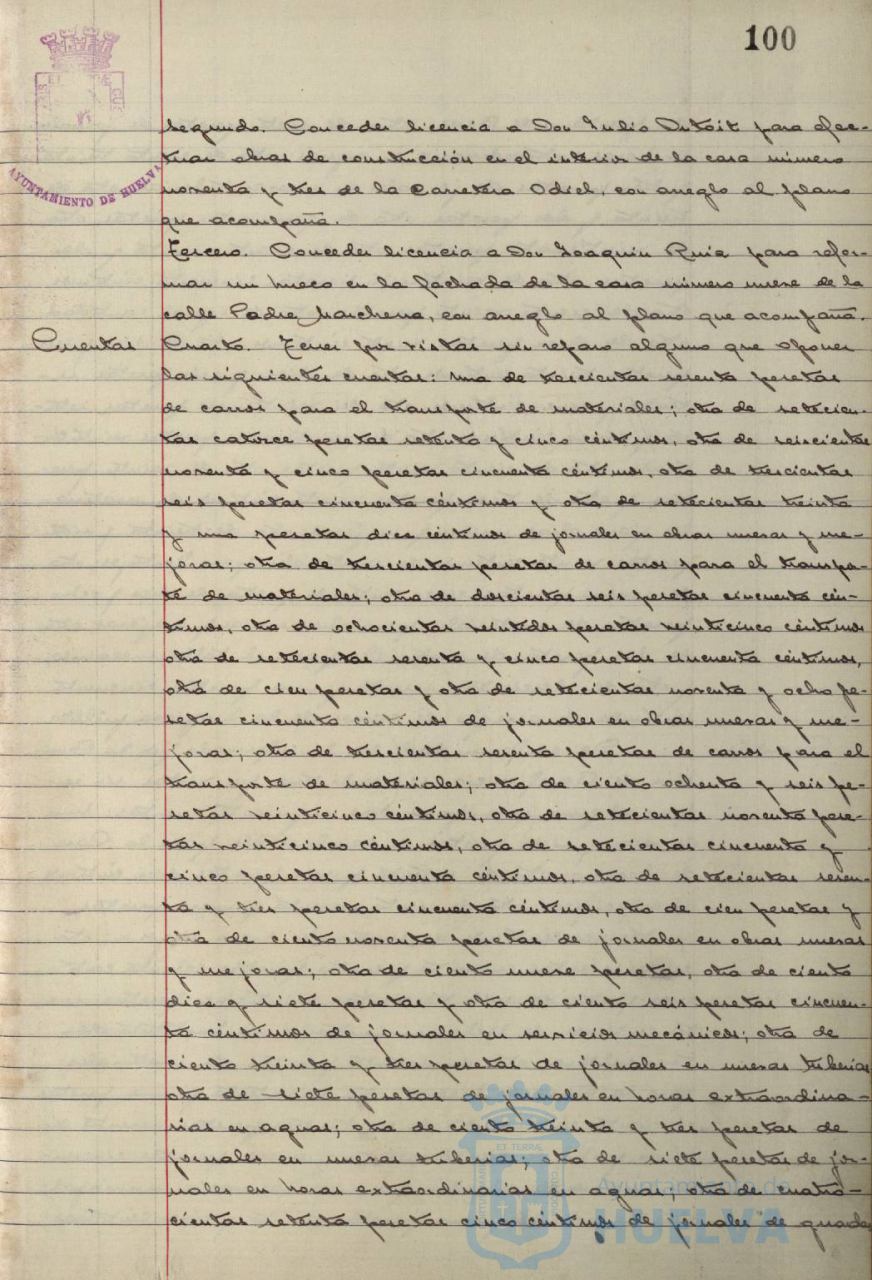 100
AYUNTAMIENTO DE HUELVA
segundo. Conceder licencia a Don Julio Dutoit para efec-
tuar obras de construcción en el interior de la casa número
noventa y tres de la Carretera Odiel, con arreglo al plano
que acompaña.
Tercero. Conceder licencia a Don Joaquin Ruiz para refor-
mar un hueco en la fachada de la casa número nueve de la
calle Padre Marchena, con arreglo al plano que acompaña.
Cuentas
Cuarto. Tener por vistas sin reparo alguno que oponer
las siguientes cuentas: una de trescientas sesenta pesetas
de carros para el transporte de materiales; otra de setecien-
tas catorce pesetas setenta y cinco céntimos, otra de seiscientas
noventa y cinco pesetas cincuenta céntimos, otra de trescientas
seis pesetas cincuenta céntimos y otra de setecientas treinta
y una pesetas diez céntimos de jornales en obras nuevas y me-
joras; otra de trescientas pesetas de carros para el transpor-
te de materiales; otra de doscientas seis pesetas cincuenta cén-
timos, otra de ochocientas veintidos pesetas veinticinco céntimos
otra de setecientas sesenta y cinco pesetas cincuenta céntimos,
otra de cien pesetas y otra de setecientas noventa y ocho pe-
setas cincuenta céntimos de jornales en obras nuevas y me-
joras; otra de trescientas sesenta pesetas de carros para el
transporte de materiales; otra de ciento ochenta y seis pe-
setas veinticinco céntimos, otra de setecientas noventa pese-
tas veinticinco céntimos, otra de setecientas cincuenta y
cinco pesetas cincuenta céntimos, otra de setecientas sesen-
ta y tres pesetas cincuenta céntimos, otra de cien pesetas y
otra de ciento noventa pesetas de jornales en obras nuevas
y mejoras; otra de ciento nueve pesetas, otra de ciento
diez y siete pesetas y otra de ciento seis pesetas cincuen-
ta céntimos de jornales en servicios mecánicos; otra de
ciento treinta y tres pesetas de jornales en nuevas tuberias
otra de siete pesetas de jornales en horas extraordina-
rias en aguas; otra de ciento treinta y tres pesetas de
jornales en nuevas tuberias; otra de siete pesetas de jor-
nales en horas extraordinarias en aguas; otra de cuatro-
cientas setenta pesetas cinco céntimos de jornales de guarda
Ayuntamiento de
HUELVA